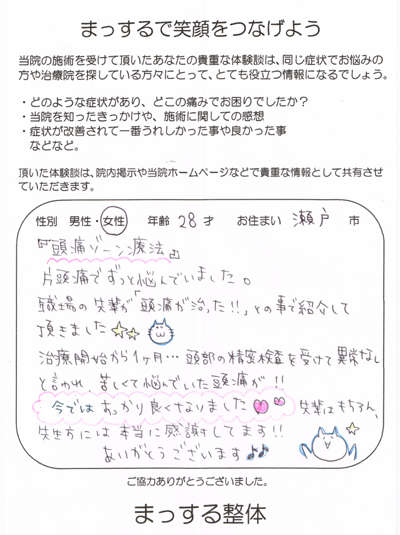 まっするで笑顔をつなげよう
当院の施術を受けて頂いたあなたの貴重な体験談は、同じ症状でお悩みの
方や治療院を探している方々にとって、とても役立つ情報になるでしょう。
・どのような症状があり、どこの痛みでお困りでしたか？
・当院を知ったきっかけや、施術に関しての感想
・症状が改善されて一番うれしかった事や良かった事
などなど。
頂いた体験談は、院内掲示や当院ホームページなどで貴重な情報として共有させ
ていただきます。
性別 男性・女性 年齢 28 才 お住まい 瀬戸 市
『頭痛ゾーン療法』
片頭痛でずっと悩んでいました。
職場の先輩が「頭痛が治った!!」との事で紹介して
頂きました
治療開始から1ヶ月…頭部の精密検査を受けて異常なし
と言われ、苦しくて悩んでいた頭痛が!!
今ではすっかり良くなりました 先輩はもちろん、
先生方には本当に感謝してます!!
ありがとうございます♪♪
ご協力ありがとうございました。
まっする整体